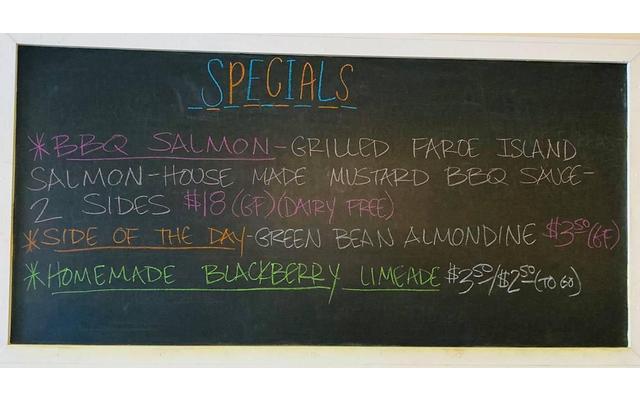 SPECIALS
*BBQ SALMON-GRILLED FAROE ISLAND
SALMON-HOUSE MADE MUSTARD BBQ SAUCE-
2 SIDES $18 (GF)(DAIRY FREE)
*SIDE OF THE DAY-GREEN BEAN ALMONDINE $3.50 (GF)
*HOMEMADE BLACKBERRY LIMEADE $3.50/$2.50 (TO GO)